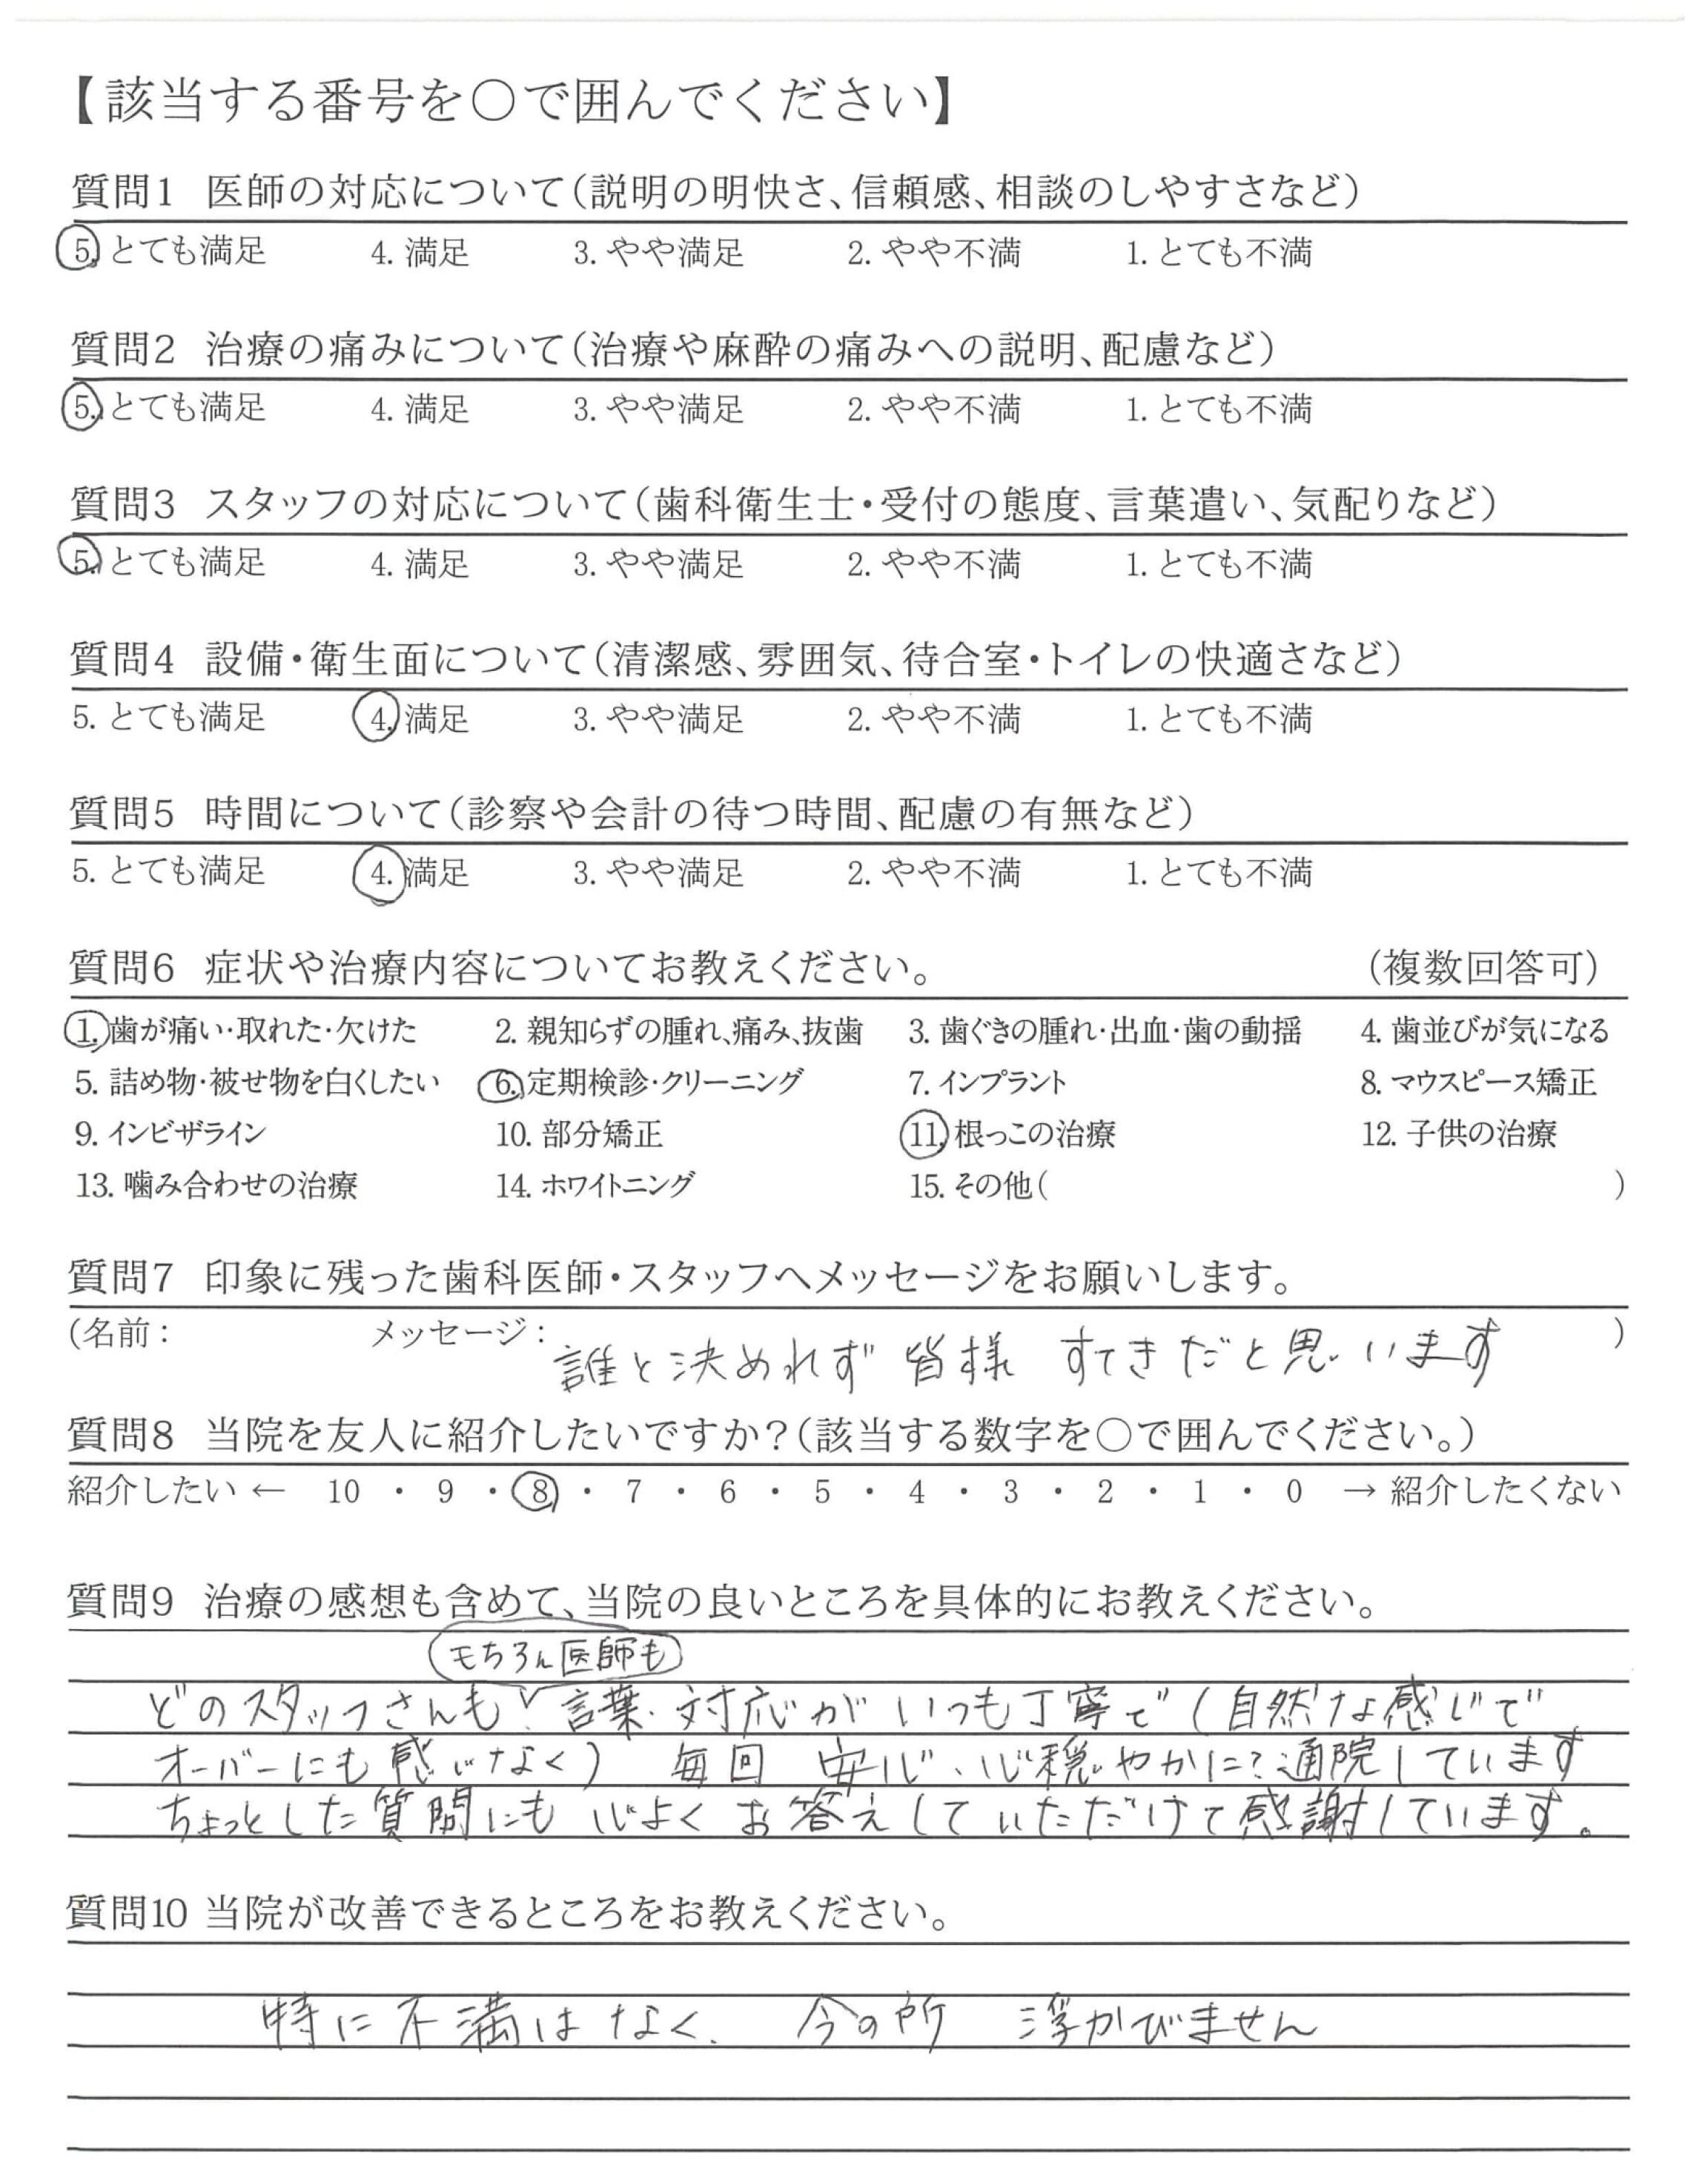 【該当する番号を〇で囲んでください】
質問1 医師の対応について(説明の明快さ、信頼感、相談のしやすさなど)
5. とても満足 4. 満足 3. やや満足 2. やや不満 1. とても不満
質問2 治療の痛みについて(治療や麻酔の痛みへの説明、配慮など)
5. とても満足 4. 満足 3. やや満足 2. やや不満 1. とても不満
質問3 スタッフの対応について(歯科衛生士・受付の態度、言葉遣い、気配りなど)
5. とても満足 4. 満足 3. やや満足 2. やや不満 1. とても不満
質問4 設備・衛生面について(清潔感、雰囲気、待合室・トイレの快適さなど)
5. とても満足 4. 満足 3. やや満足 2. やや不満 1. とても不満
質問5 時間について(診察や会計の待つ時間、配慮の有無など)
5. とても満足 4. 満足 3. やや満足 2. やや不満 1. とても不満
質問6 症状や治療内容についてお教えください。 (複数回答可)
1. 歯が痛い・取れた・欠けた 2. 親知らずの腫れ、痛み、抜歯 3. 歯ぐきの腫れ・出血・歯の動揺 4. 歯並びが気になる
5. 詰め物・被せ物を白くしたい 6. 定期検診・クリーニング 7. インプラント 8. マウスピース矯正
9. インビザライン 10. 部分矯正 11. 根っこの治療 12. 子供の治療
13. 噛み合わせの治療 14. ホワイトニング 15. その他( )
質問7 印象に残った歯科医師・スタッフへメッセージをお願いします。
(名前: メッセージ: 誰と決めれず 皆様 すてきだと思います )
質問8 当院を友人に紹介したいですか?(該当する数字を〇で囲んでください。)
紹介したい ← 10 ・ 9 ・ 8 ・ 7 ・ 6 ・ 5 ・ 4 ・ 3 ・ 2 ・ 1 ・ 0 → 紹介したくない
質問9 治療の感想も含めて、当院の良いところを具体的にお教えください。
モちろん医師も
どのスタッフさんも 言葉・対応が いつも丁寧で (自然な感じで
オーバーにも感じなく) 毎回 安心、心穏やかに?通院しています
ちょっとした質問にも 心よく お答えしていただけて感謝しています。
質問10 当院が改善できるところをお教えください。
特に不満はなく、 今の所 浮かびません